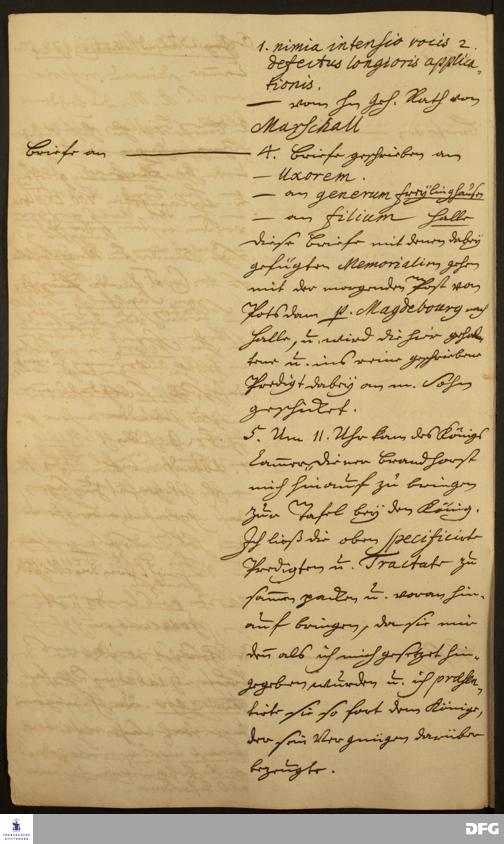 1. nimia intensio vocis 2.
defectus longioris applica-
tionis.
— vom Hn Geh. Rath von
Marschall
Briefe an — 4. Briefe geschrieben an
— Uxorem.
— an generum Freylinghausen
— an filium Halle
diese Briefe mit denen dabey
gefügten Memorialien gehen
mit der morgenden Post von
Potsdam p. Magdebourg nach
Halle, u. wird die hier gehal-
tene u. ins reine geschriebene
Predigt dabey an m. Sohn
geschicket.
5. Um 11. Uhr kam des Königs
Cammer-diener Brandhorst
mich hinauf zu bringen
zur Tafel bey den König.
Ich ließ die oben specificirte
Predigten u. Tractate zu
samen packen u. voran hin-
auf bringen, da sie mir
den als ich mich gesetzet hin-
gegeben wurden u. ich præsen-
tirte sie so fort dem Könige,
der sein Vergnügen darüber
bezeugte.
FRANCKESCHE
STIFTUNGEN
DFG